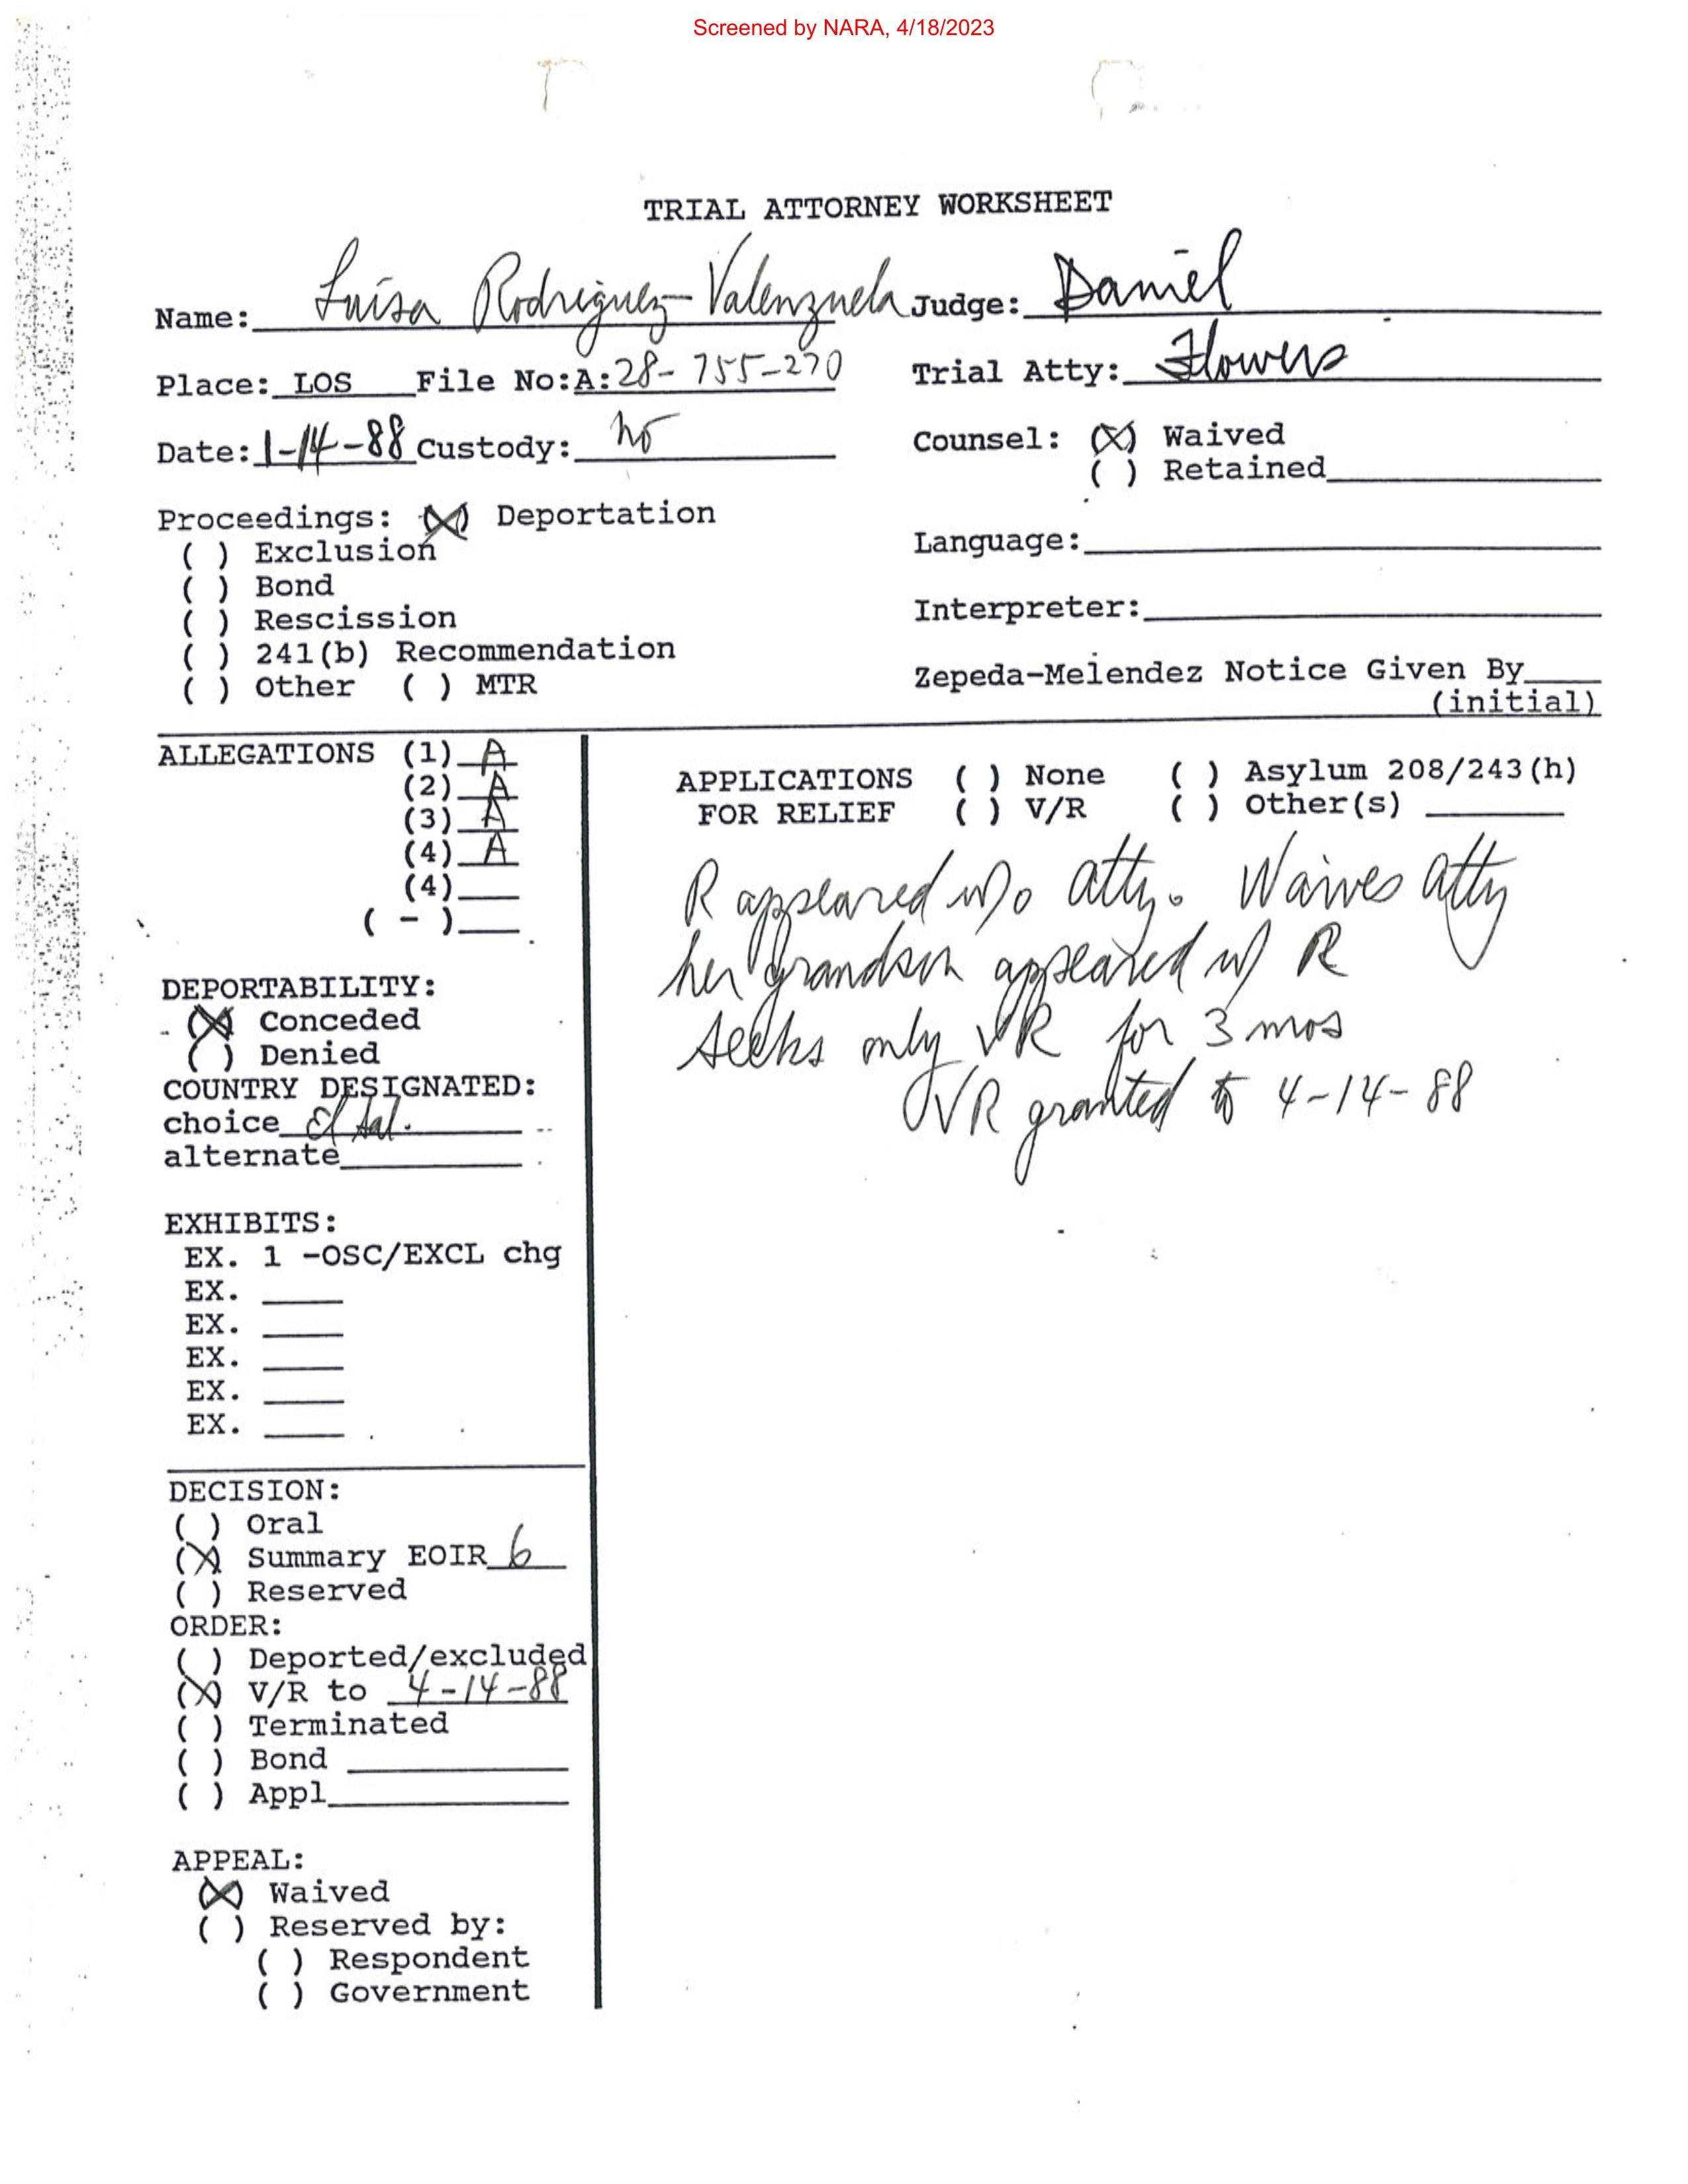 Screened by NARA, 4/18/2023
TRIAL ATTORNEY WORKSHEET
Name: Luisa Rodriguez-Valenzuela Judge: Daniel
Place: LOS File No:A:28-755-270 Trial Atty: Flowers
Date: 1-14-88 Custody: No Counsel: (X) Waived
( ) Retained
Proceedings: (X) Deportation
( ) Exclusion
( ) Bond
( ) Rescission
( ) 241(b) Recommendation
( ) Other ( ) MTR
Language:
Interpreter:
Zepeda-Melendez Notice Given By
(initial)
ALLEGATIONS (1) A
(2) A
(3) A
(4) A
(4)
( - )
DEPORTABILITY:
(X) Conceded
( ) Denied
COUNTRY DESIGNATED:
choice El Sal.
alternate
EXHIBITS:
EX. 1 -OSC/EXCL chg
EX.
EX.
EX.
EX.
EX.
DECISION:
( ) Oral
(X) Summary EOIR 6
( ) Reserved
ORDER:
( ) Deported/excluded
(X) V/R to 4-14-88
( ) Terminated
( ) Bond
( ) Appl
APPEAL:
(X) Waived
( ) Reserved by:
( ) Respondent
( ) Government
APPLICATIONS ( ) None ( ) Asylum 208/243(h)
FOR RELIEF ( ) V/R ( ) Other(s)
R appeared w/o atty. Waives atty
her grandson appeared w/ R
seeks only VR for 3 mos
VR granted to 4-14-88